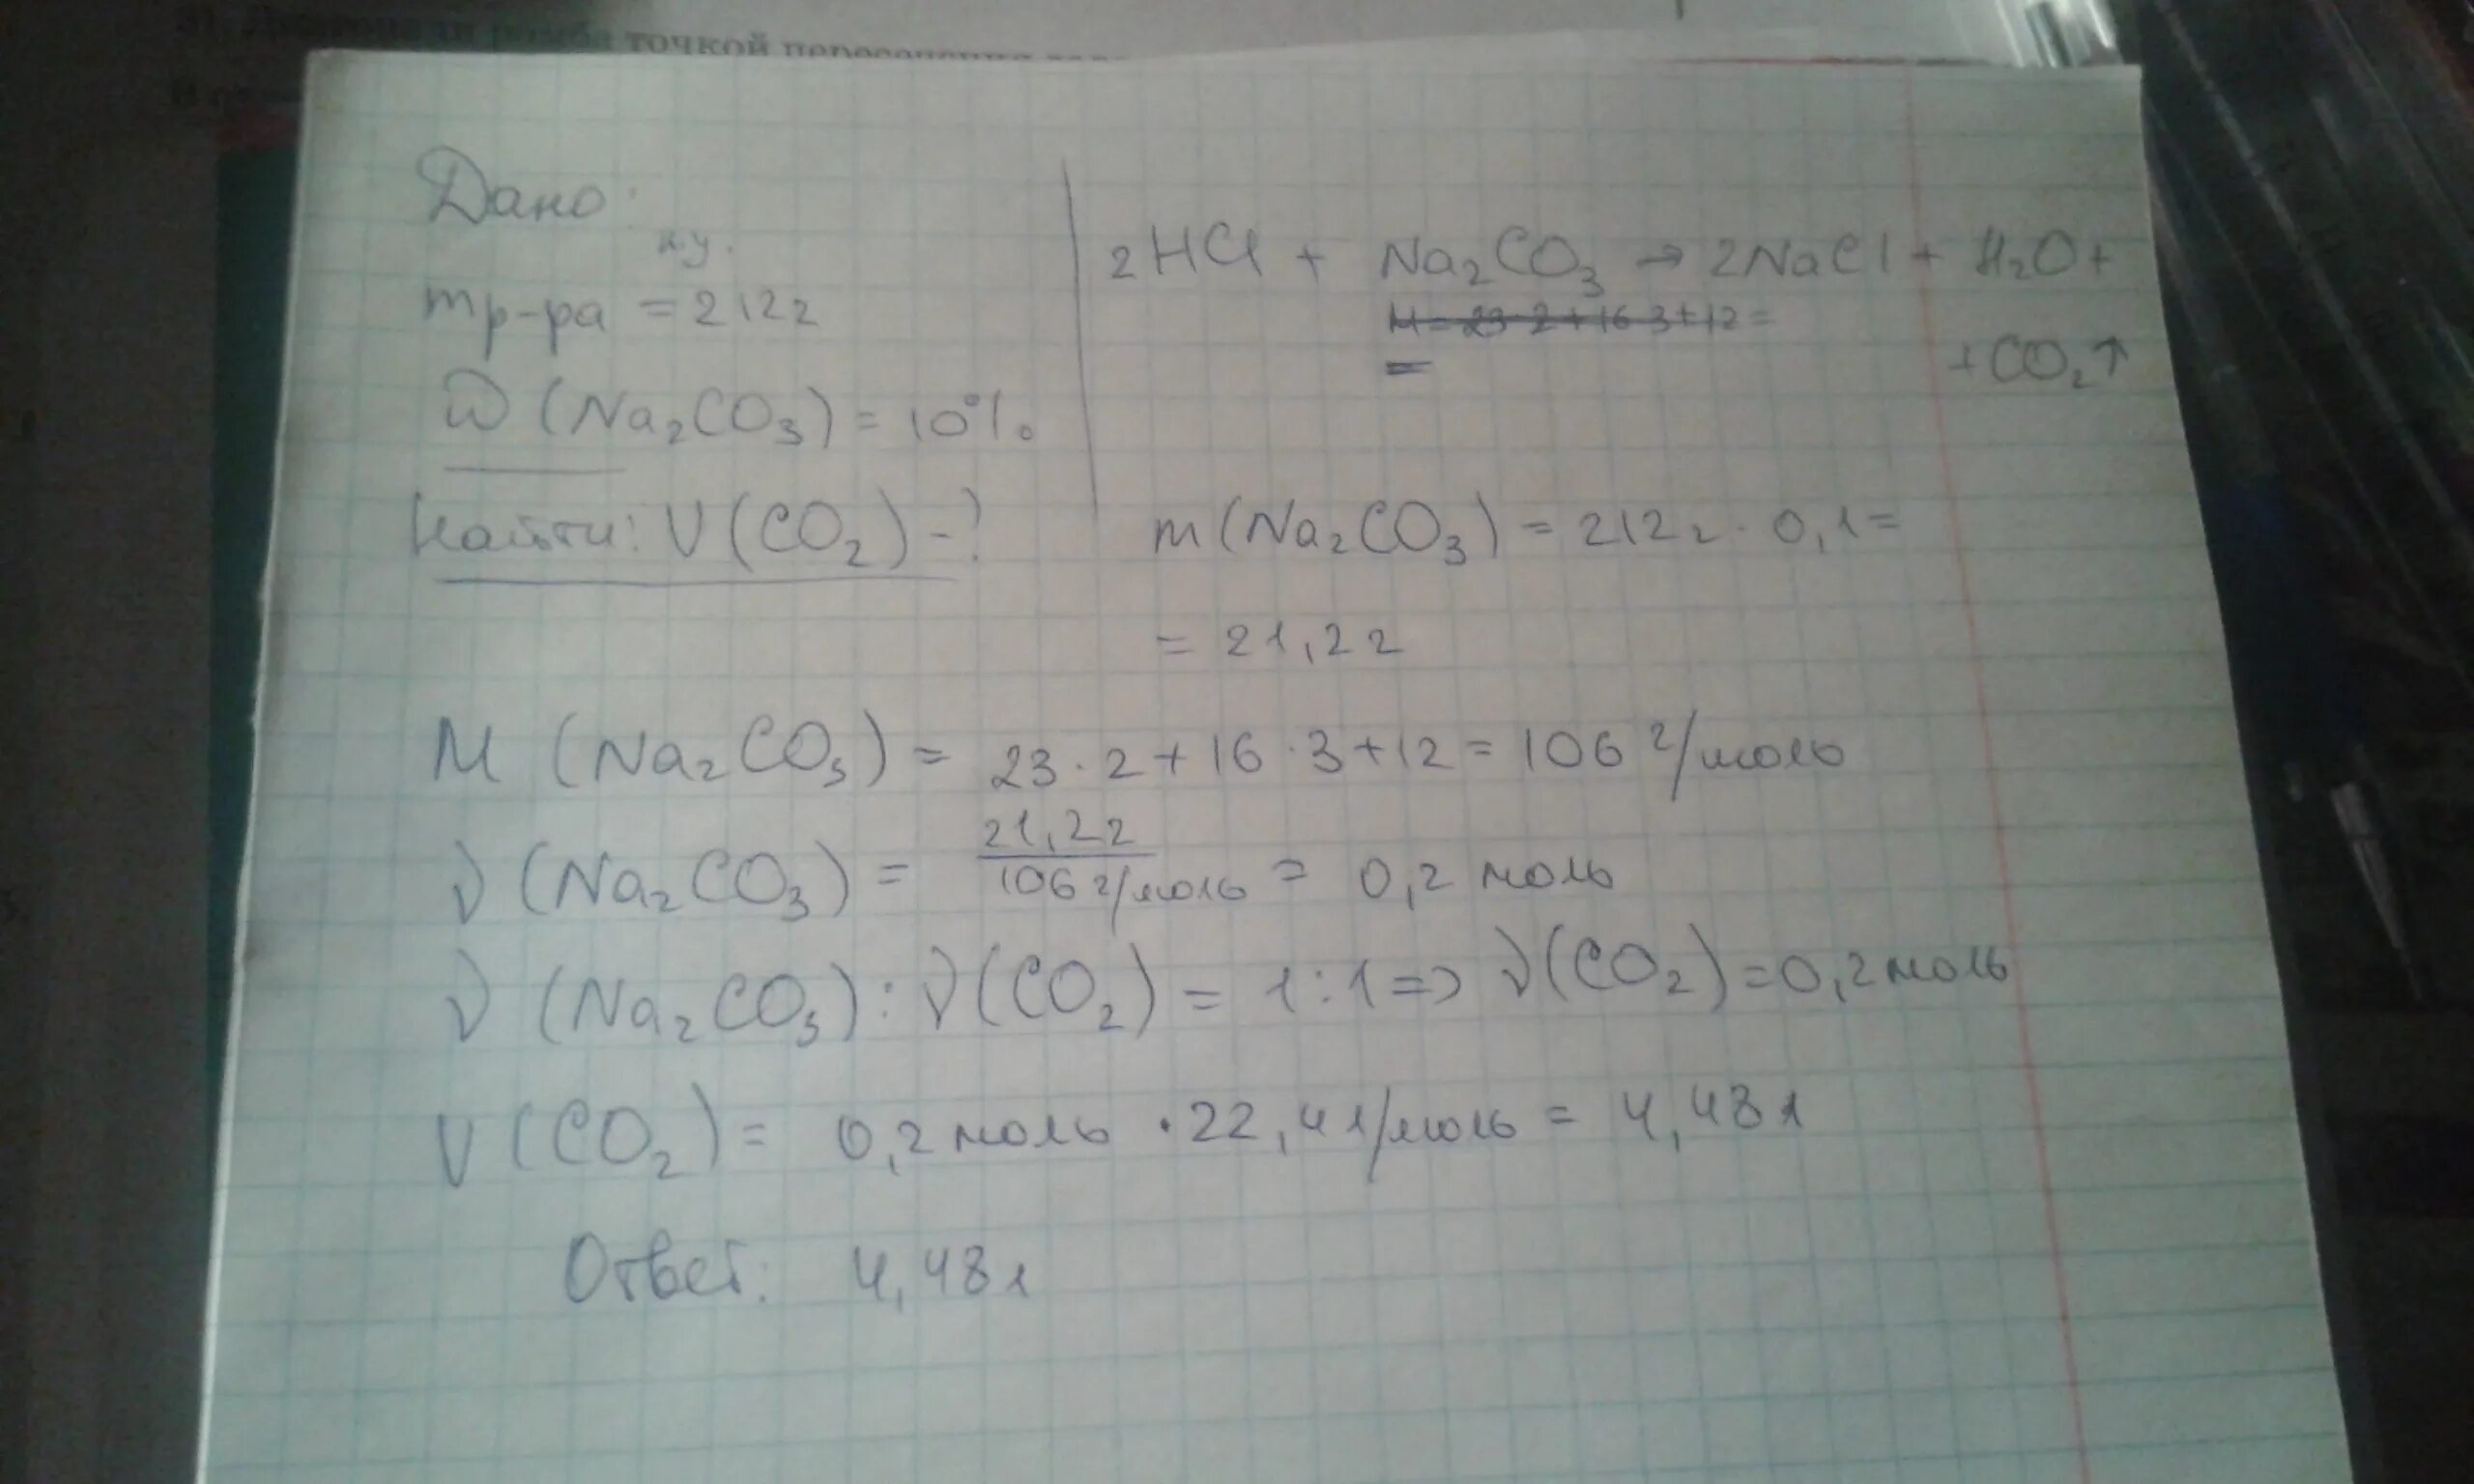 точкой пересечения
Дано:
н.у.
mр-ра = 212г
ω (Na₂CO₃) = 10%
Найти: V(CO₂) - ?
2HCl + Na₂CO₃ → 2NaCl + H₂O +
M = 23·2+16·3+12 =
=
+ CO₂↑
m(Na₂CO₃) = 212г · 0,1 =
= 21,2г
M (Na₂CO₃) = 23·2 + 16·3 + 12 = 106 г/моль
ν (Na₂CO₃) = 21,2г / 106 г/моль = 0,2 моль
ν (Na₂CO₃) : ν(CO₂) = 1:1 => ν(CO₂) = 0,2 моль
V (CO₂) = 0,2 моль · 22,4 л/моль = 4,48 л
Ответ: 4,48 л